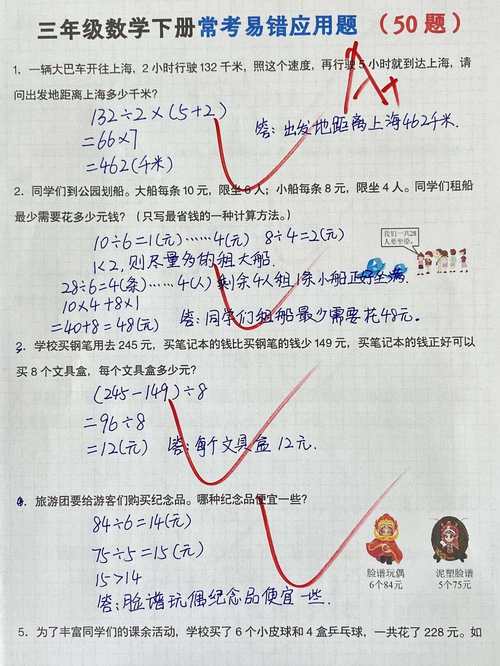 三年级数学下册常考易错应用题（50题）
A+
1．一辆大巴车开往上海，2小时行驶132千米，照这个速度，再行驶5小时就到达上海，请
问出发地距离上海多少千米？
132÷2×(5+2)
=66×7
=462(千米)
答：出发地距离上海462千米.
2．同学们到公园划船。大船每条10元，限坐6人；小船每条8元，限坐4人。同学们租船
最少需要花多少元钱？（只写最省钱的一种计算方法。）
我们一共28
人要坐船。
10÷6=1(元)……4(元) 8÷4=2(元)
1<2，则尽量多的租大船.
28÷6=4(条)……4(人) 剩余4人租1条小船正好坐满.
10×4+8×1
=40+8=48(元) 答：同学们租船最少需要花48元.
3．学校买钢笔用去245元，买笔记本的钱比买钢笔的钱少149元，买笔记本的钱正好可以
买8个文具盒，每个文具盒多少元？
(245-149)÷8
=96÷8
=12(元) 答：每个文具盒12元.
4．旅游团要给游客们购买纪念品。哪种纪念品便宜一些？
84÷6=14(元)
75÷5=15(元)
15>14
答：脸谱玩偶纪念品便宜一些.
脸谱玩偶
6个84元
泥塑脸谱
5个75元
5．为了丰富同学们的课余活动，学校买了6个小皮球和4盒乒乓球，一共花了228元。如